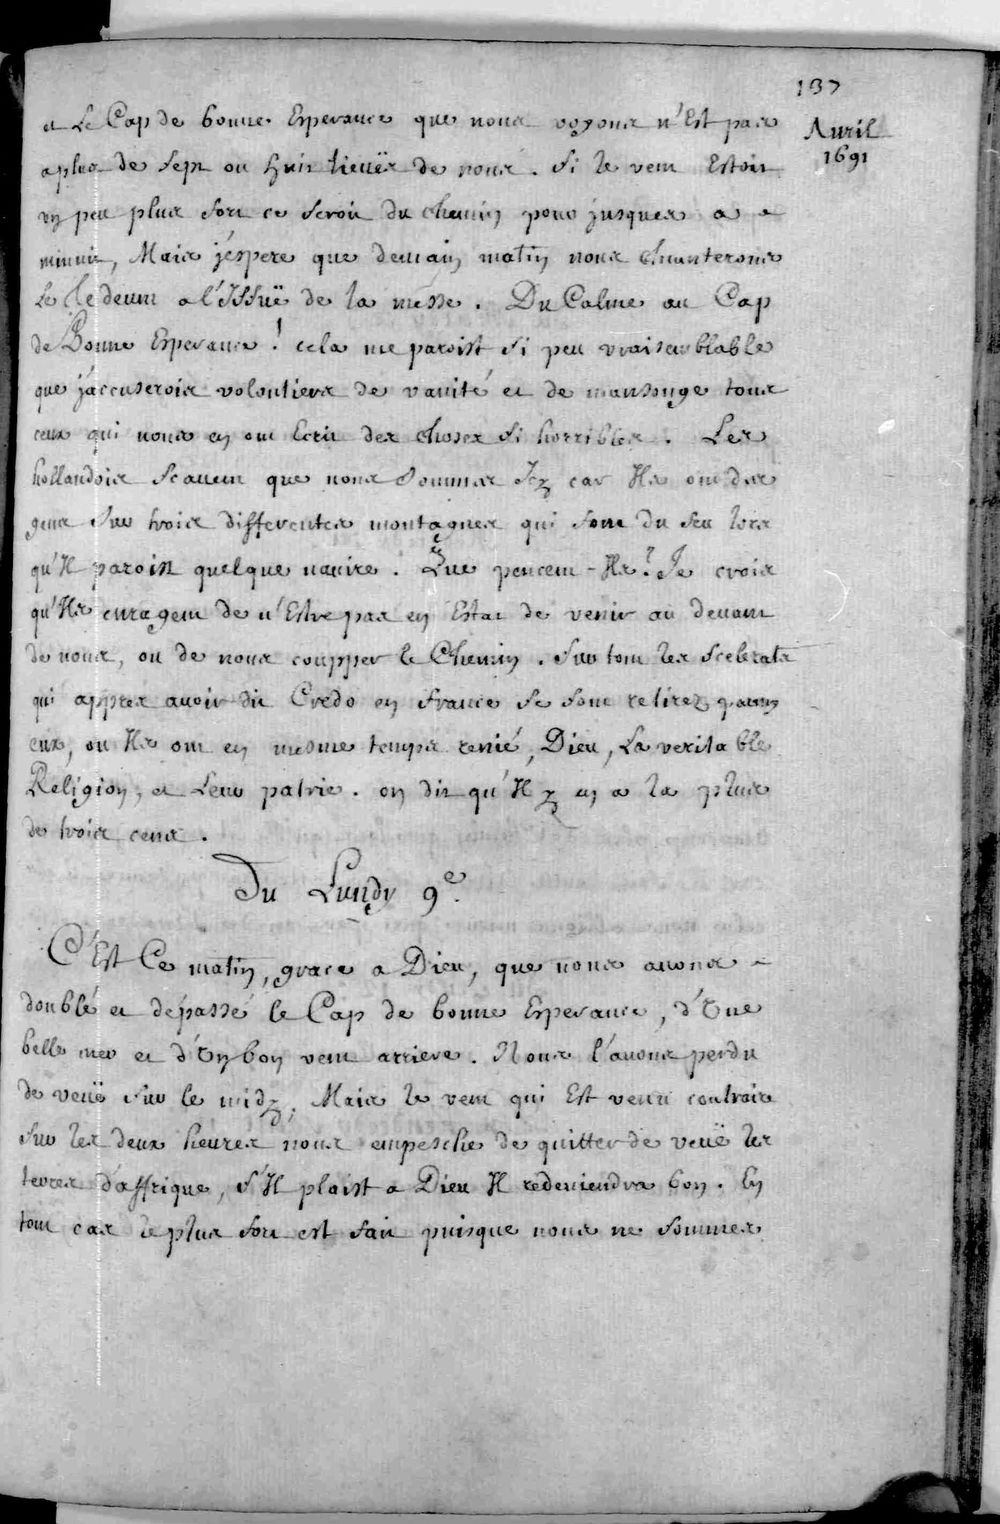 137
Avril
1691
et Le Cap de bonne Esperance que nous voyons n'Est pas
a plus de sept ou huit lieuës de nous. Si le vent Estoit
un peu plus fort ce seroit du chemin pour jusques a
minuit, Mais j'espere que demain matin nous chanterons
Le Te deum a l'Issuë de la messe. Du Calme au Cap
de Bonne Esperance! cela me paroist si peu vraisemblable
que j'accuserois volontiers de vanité et de mansonge tous
ceux qui nous en ont Ecrit des choses si horribles. Les
hollandois scavent que nous sommes Icy car Ils ont des
gens sur trois differentes montagnes qui font du feu lors
qu'Il paroist quelque navire. Que pencent-Ils? Je crois
qu'Ils enragent de n'Estre pas en Estat de venir au devant
de nous, ou de nous coupper le Chemin. sur tout les scelerats
qui appres avoir dit Credo en france se sont retirez parmy
eux, ou Ils ont en mesme temps renié, Dieu, La veritable
Religion, et Leur patrie. on dit qu'Il y en a la plus
de trois cens.
Du Lundy 9e.
C'Est Ce matin, grace a Dieu, que nous avons
doublé et dépassé le Cap de bonne Esperance, d'Une
belle mer et d'Un bon vent arriere. Nous l'avons perdu
de veuë sur le midy, Mais le vent qui Est venu contraire
sur les deux heures nous empesche de quitter de veuë les
terres d'affrique, s'Il plaist a Dieu Il redeviendra bon. En
tout cas le plus fort est fait puisque nous ne sommes